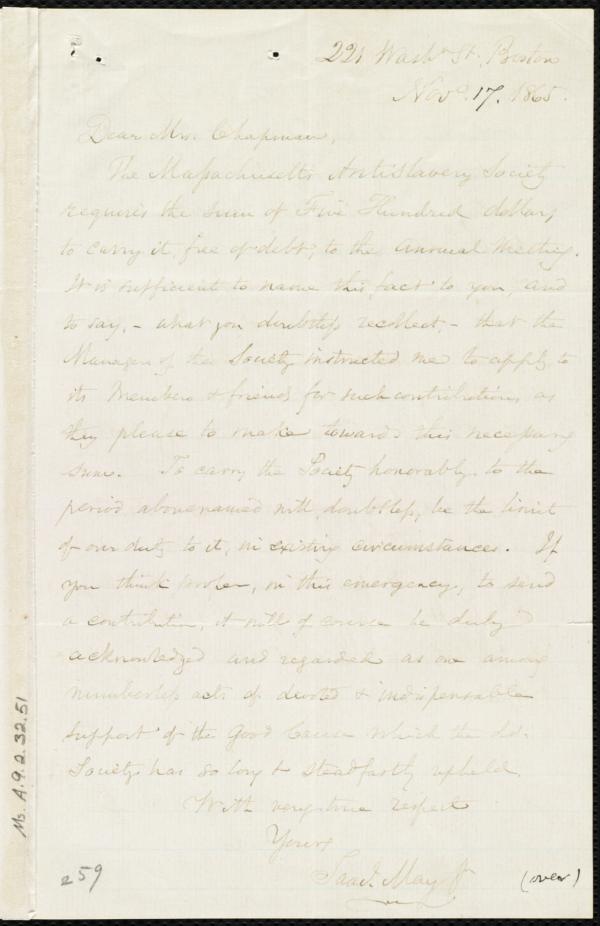 221 Washn St. Boston
Nov. 17. 1865.
Dear Mrs. Chapman,
The Massachusetts Antislavery Society
requires the sum of Five Hundred dollars,
to carry it, free of debt, to the Annual Meeting.
It is sufficient to name this fact to you, and
to say, - what you doubtless recollect, - that the
Managers of the Society instructed me to apply to
its Members & friends for such contributions as
they please to make towards this necessary
sum. To carry the Society honorably to the
period abovenamed will, doubtless, be the limit
of our duty to it, in existing circumstances. If
you think proper, in this emergency, to send
a contribution, it will of course be duly
acknowledged and regarded as one among
numberless acts of devoted & indispensable
support of the Good Cause which the sd.
Society has so long & steadfastly upheld.
With very true respect
Yours
Saml. May Jr
(over)
259
Ms. A.9.2.32.51